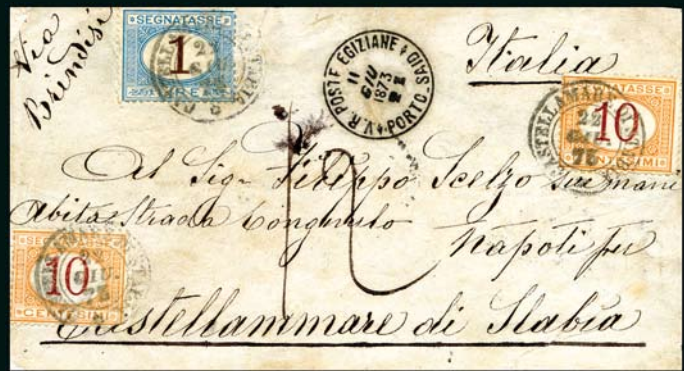 Via
Brindisi
SEGNATASSE
1
LIRE
V.R. POSTE EGIZIANE PORTO-SAID
11
GIU
1873
Italia
SEGNATASSE
10
CENTESIMI
CASTELLAMARE DI STABIA
22
GIU
73
12
Al Sig. Filippo Scelzo sue mani
Abita Strada
Napoli per
SEGNATASSE
10
CENTESIMI
22
GIU
Castellammare di Stabia